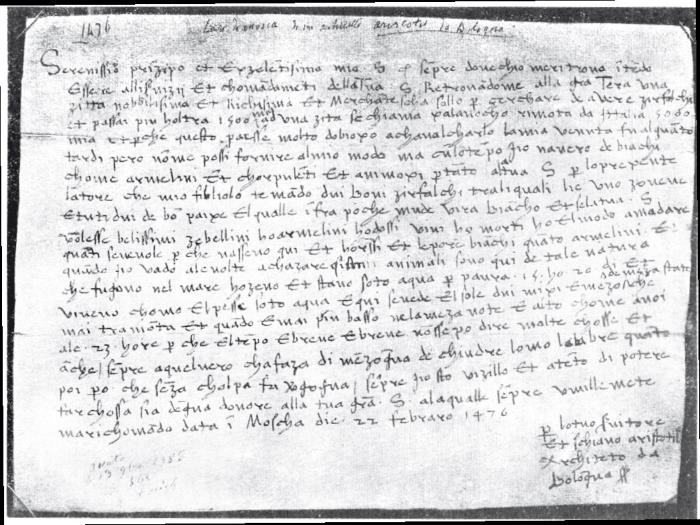 1476
aristotele da Bologna
Serenissio prizipo et Exzelētisimo mio S. el sēpre dove chio me ritrovo ītēdo
Essere alli servizii Et chomādameti della Tua S. Retrovādome alla grā Tera una
zitta nobbilisima Et Richissima Et Merchatescha sollo p. zerchare de avere zirfalchi
et passai piu holtra 1500 una zita se chiama xalauocho rimota da Italia 5000
mia et p che questo paesse molto a chavalcharlo la mia venuta fu alquāto
tardi pero nōme possi fornire al mio modo ma cu lo tēpo jio navero de biāchi
chome armelini Et chorpulēti Et animoxi p tāto alla tua S. p lo prexente
latore che mio fibliolo te mādo dui boni zirfalchi tra li quali he uno zovene
e tuti dui de bō paixe El qualle ifra poche mude vira biācho Et se la tua S.
volesse belissimi zebellini ho armelini ho dossi vivi ho morti ho el modo a mādare
quāti se ne vole p che nasseno qui Et horssi Et lepore biāchi quāto armelini. Et
quādo jio vado ale volte a chazare questi animali sono qui de tale natura
che fugono nel mare hozeno Et stano soto aqua p paura. 15. ho 20. di et
viveno chomo El pesse soto aqua E qui se vede El sole dui mixi e mezo che
mai tramōta Et quādo E mai piu basso nela meza note E alto chome a noi
ale. 23. hore p che El tēpo E breve nō sse po dire molte chosse Et
āche sēpre a quel vero cha faza di mēzogna de chiudre l omo labre quāto
poi p o che sēza cholpa fa vgogna sēpre jio sto vizillo Et atēto di potere
far chossa sia degna donore alla tua grā. S. ala qualle sēpre umillemēte
mārichomādo data i Moscha die. 22 febraro 1476
p lo tuo srvitore
Et schiavo aristotil
Architeto da
Bologna ss